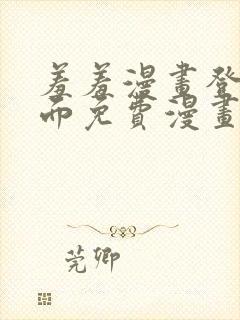 羞羞漫畫登
而免費漫畫
莞卿